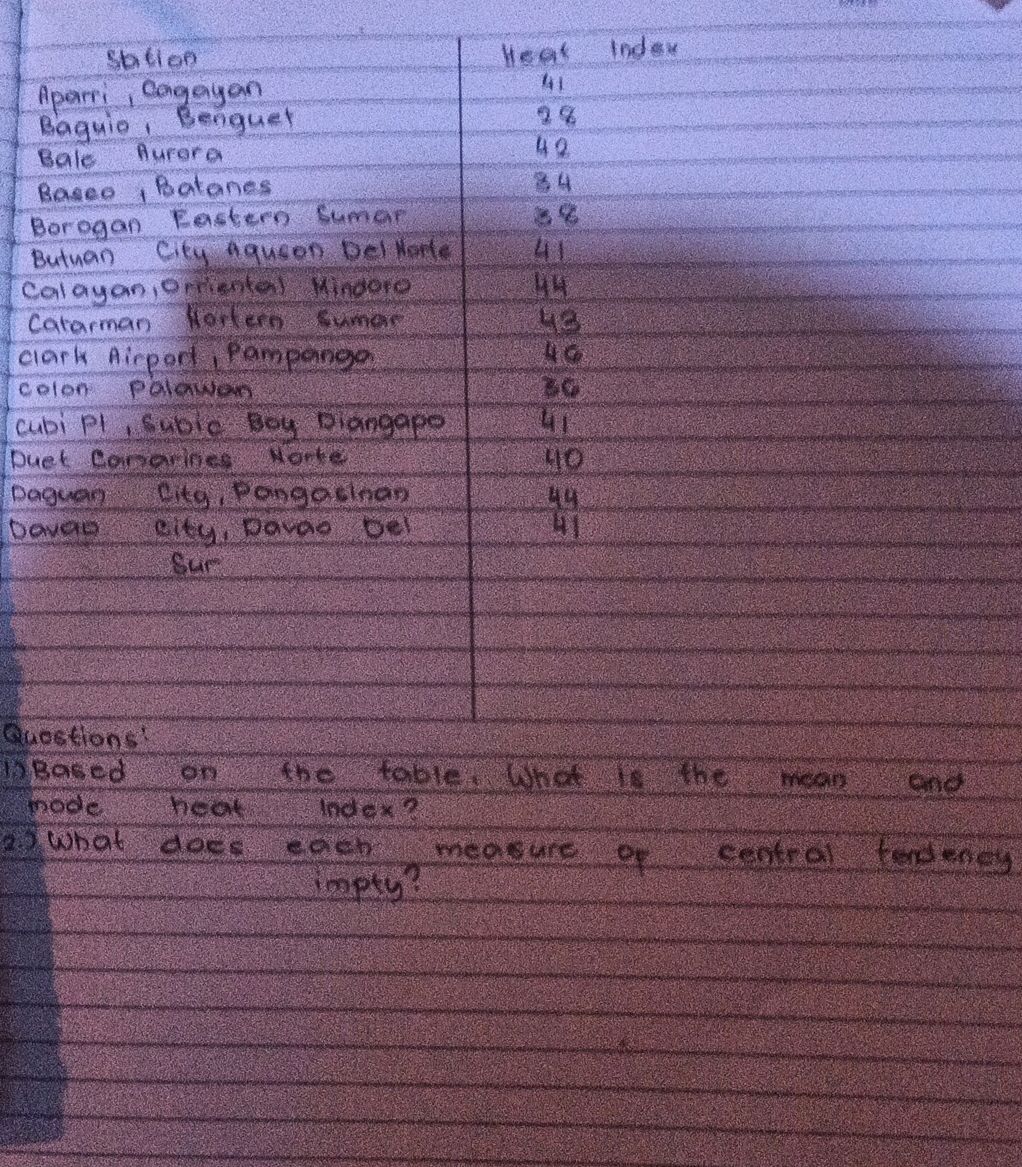 Station Heat Index
Aparri, Cagayan 41
Baguio, Benguet 28
Bale Aurora 42
Baseo, Batanes 34
Borogan Eastern Sumar 38
Butuan City Aguson Del Norte 41
Calayan, Orriental Mindoro 44
Catarman Nortern Sumar 43
Clark Airport, Pampanga 46
Colon Palawan 36
Cubi Pt, Subic Boy Olangapo 41
Duet Camarines Norte 40
Daguan City, Pangasinan 44
Davao City, Davao Del 41
Sur
Questions:
1.) Based on the table. What is the mean and
mode heat Index?
2.) What does each measure of central tendency
impty?